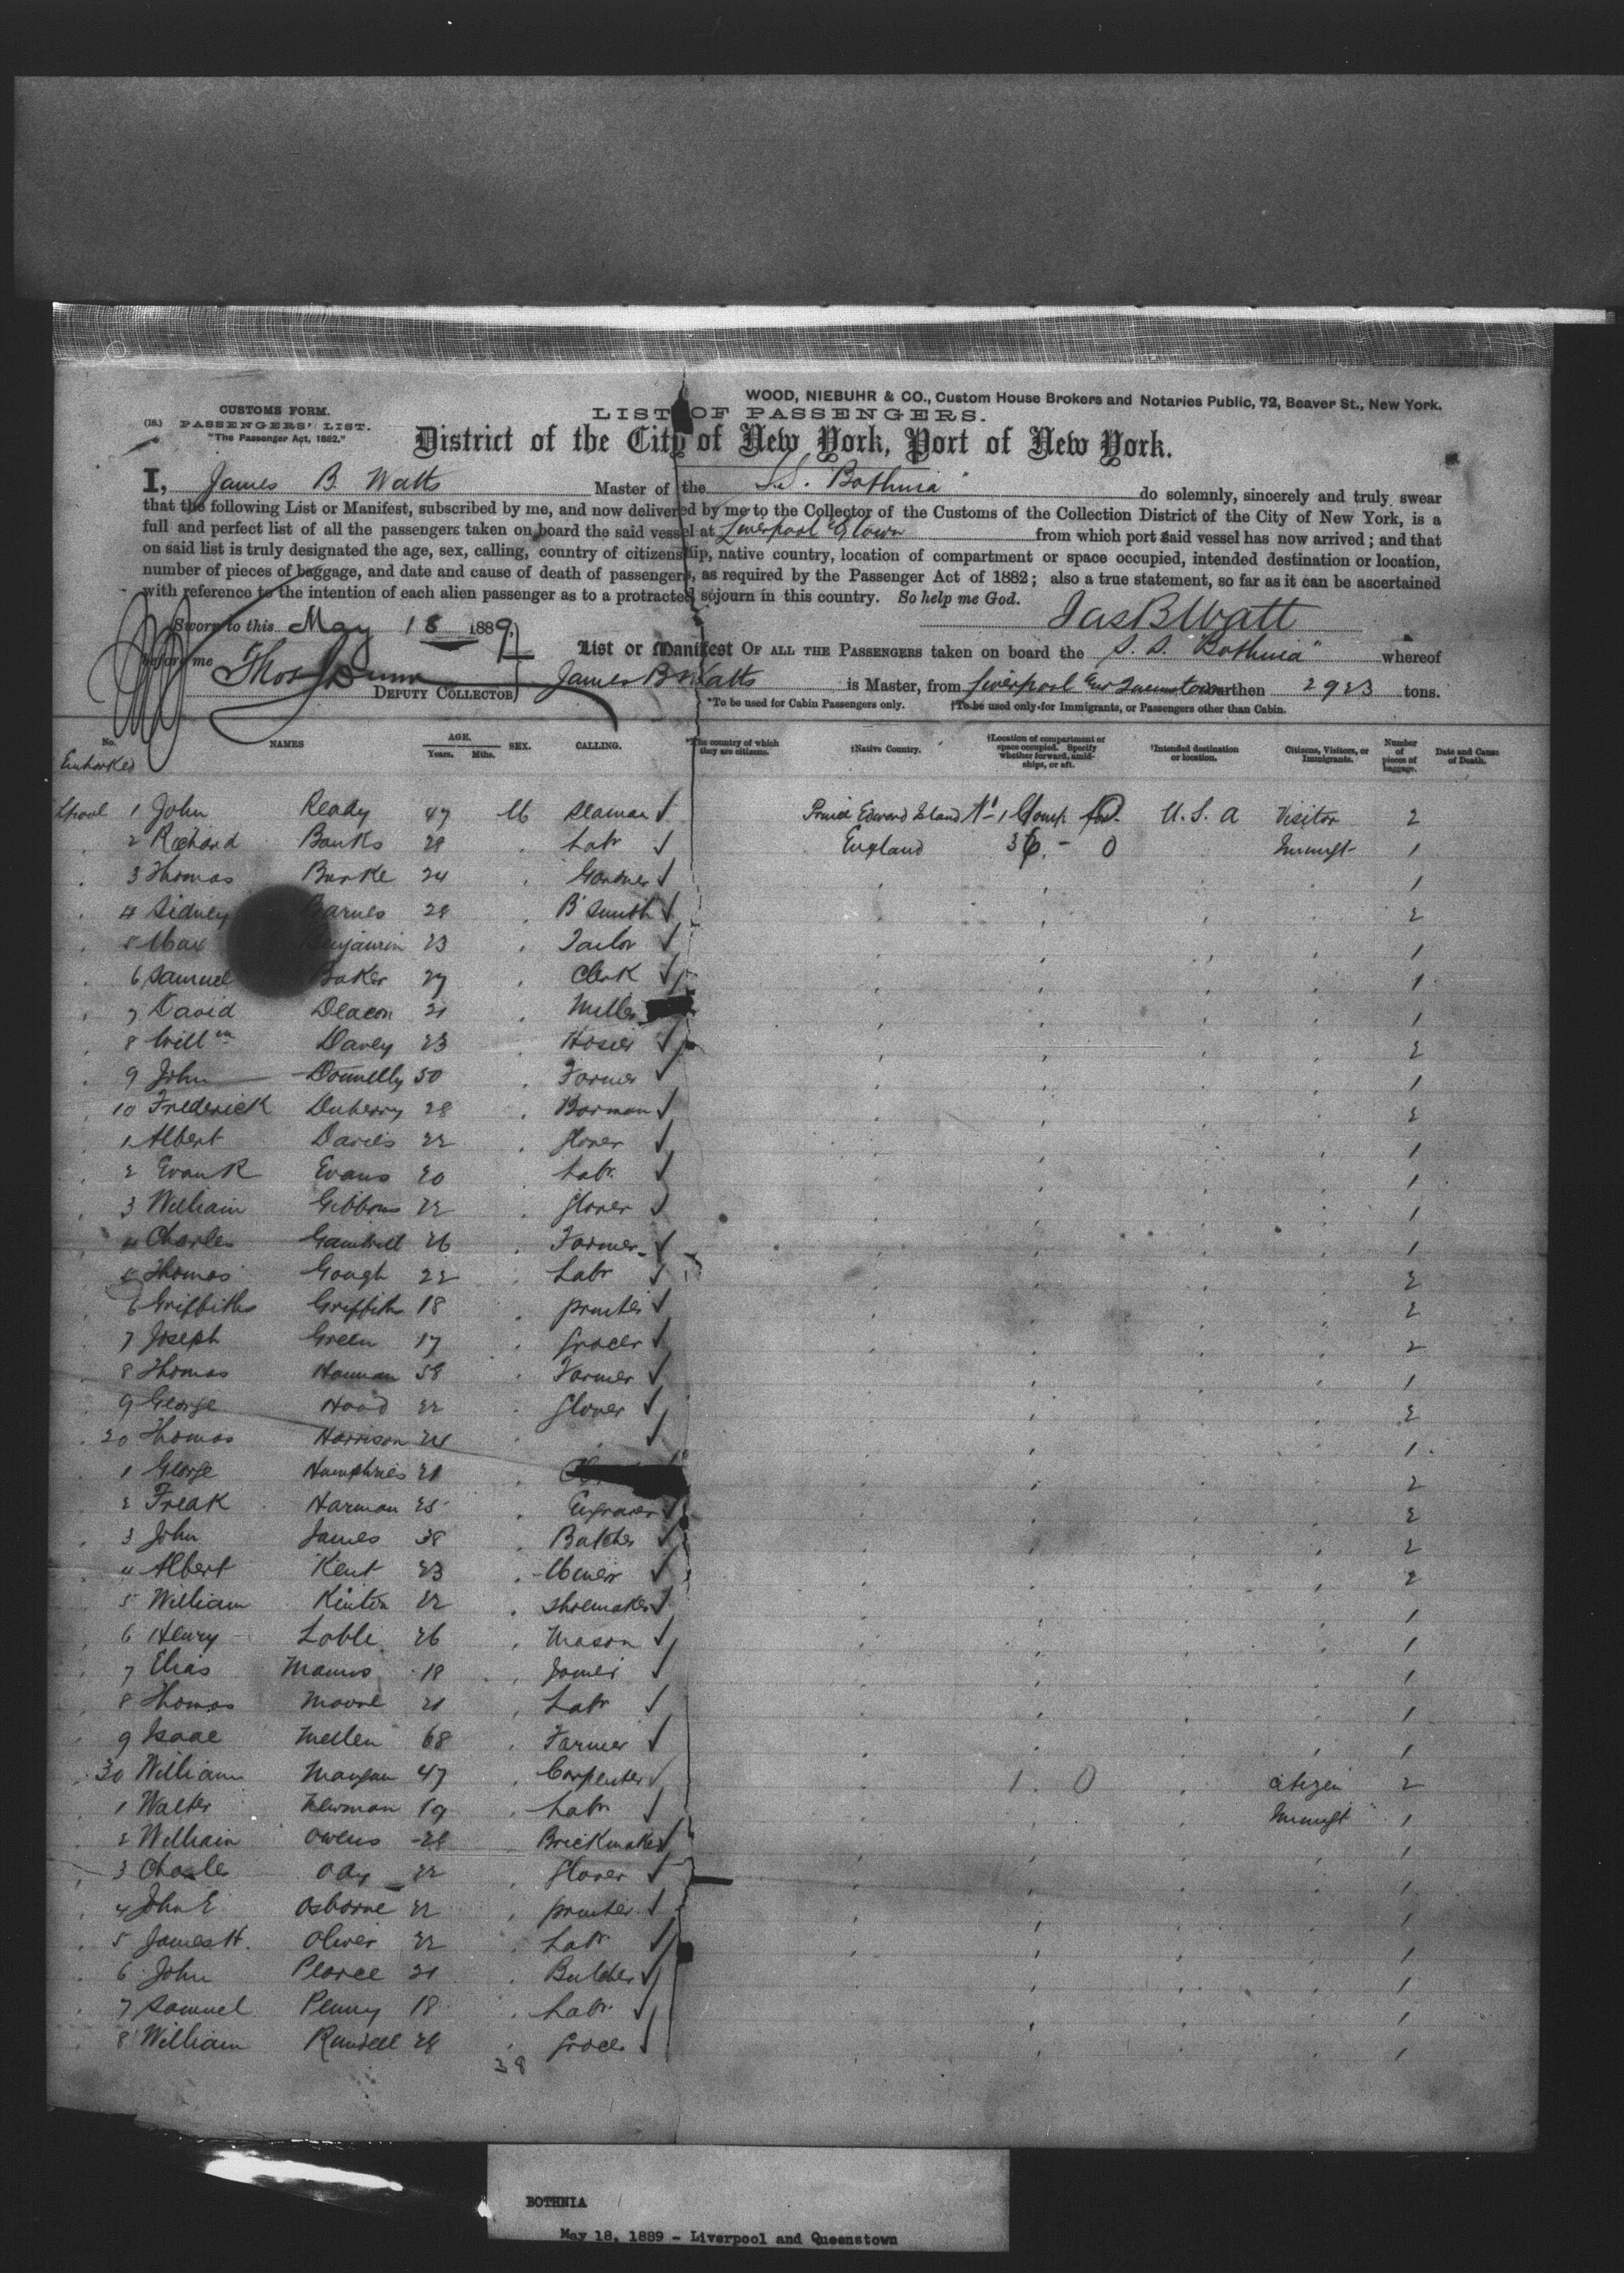 WOOD, NIEBUHR & CO., Custom House Brokers and Notaries Public, 72, Beaver St., New York.
CUSTOMS FORM.
(18.) PASSENGERS' LIST.
"The Passenger Act, 1882."
LIST OF PASSENGERS.
District of the City of New York, Port of New York.
I, James B. Watts Master of the S.S. "Bothnia" do solemnly, sincerely and truly swear
that the following List or Manifest, subscribed by me, and now delivered by me to the Collector of the Customs of the Collection District of the City of New York, is a
full and perfect list of all the passengers taken on board the said vessel at Liverpool & Qtown from which port said vessel has now arrived; and that
on said list is truly designated the age, sex, calling, country of citizenship, native country, location of compartment or space occupied, intended destination or location,
number of pieces of baggage, and date and cause of death of passengers, as required by the Passenger Act of 1882; also a true statement, so far as it can be ascertained
with reference to the intention of each alien passenger as to a protracted sojourn in this country. So help me God.
Jas B Watt
Sworn to this May 18 1889,
before me Thos Dunn
DEPUTY COLLECTOR
List or Manifest OF ALL THE PASSENGERS taken on board the S. S. "Bothnia" whereof
James B Watts is Master, from Liverpool and Queenstown burthen 2923 tons.
*To be used for Cabin Passengers only. †To be used only for Immigrants, or Passengers other than Cabin.
No. NAMES AGE. Years. Mths. SEX. CALLING. *The country of which they are citizens. †Native Country. †Location of compartment or space occupied. Specify whether forward, amidships, or aft. †Intended destination or location. Citizens, Visitors, or Immigrants. Number of pieces of baggage. Date and Cause of Death.
Embarked
Lpool 1 John Ready 47 M Seaman Prince Edward Island No 1 Comp U.S.A Visitor 2
2 Richard Banks 28 Labr England Immgt 1
3 Thomas Burke 24 Gardner 1
4 Sidney Barnes 28 B Smith 2
5 Max Benjamin 23 Tailor 1
6 Samuel Baker 27 Clerk 1
7 David Deacon 21 Miller 1
8 Willm Davey 23 Hosier 2
9 John Donnelly 50 Farmer 1
10 Frederick Duberry 28 Barman 2
1 Albert Davies 22 Glover 1
2 Evan R Evans 20 Labr. 1
3 William Gibbons 22 Glover 1
4 Charles Gambrell 26 Farmer 1
5 Thomas Gough 22 Labr 2
6 Griffiths Griffiths 18 printer 2
7 Joseph Green 17 Grocer 2
8 Thomas Hannan 58 Farmer 1
9 George Hood 22 Glover 2
20 Thomas Harrison 24 1
1 George Humphries 21 2
2 Freak Harman 25 Engraver 2
3 John James 38 Butcher 2
4 Albert Kent 23 Miner 2
5 William Kinton 22 Shoemaker 1
6 Henry Lobli 26 Mason 1
7 Elias Manns 18 Joiner 1
8 Thomas Moore 21 Labr 1
9 Isaac Mellen 68 Farmer 1
30 William Mangan 47 Carpenter 1 0 citizen 2
1 Walter Newman 19 Labr Immgt 1
2 William Owens 28 Brickmaker 1
3 Charles Ody 22 Glover 1
4 John E Osborne 22 printer 1
5 James H. Oliver 22 Labr 1
6 John Pearce 21 Butcher 1
7 Samuel Penny 18 Labr 1
8 William Randell 28 Grocer 1
38
BOTHNIA
May 18, 1889 - Liverpool and Queenstown